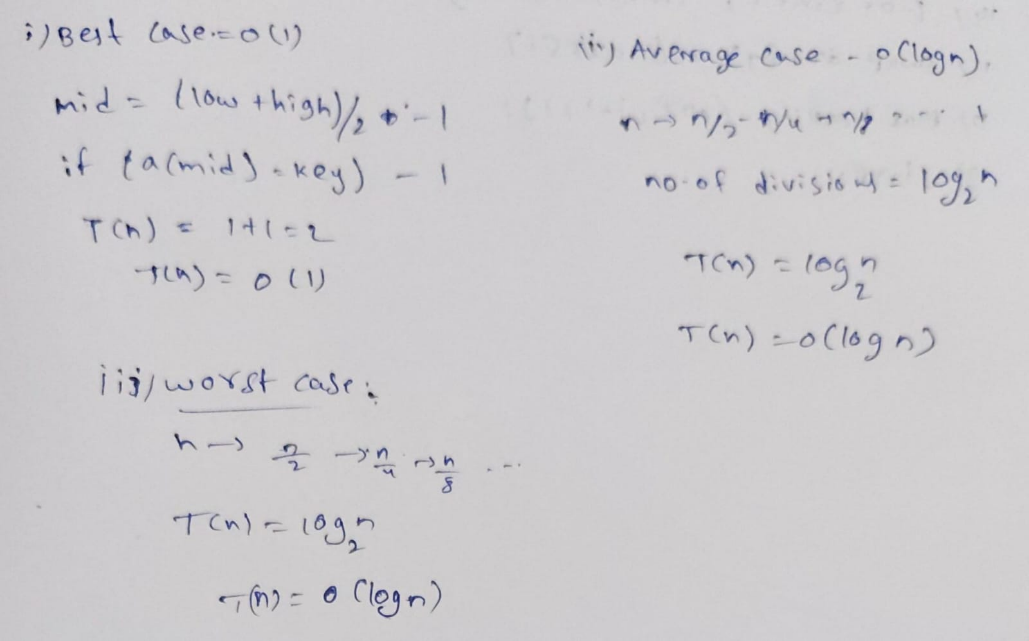 i) Best case = O(1)
mid = (low + high)/2 - 1
if (a(mid) = key) - 1
T(n) = 1+1=2
T(n) = O(1)
ii) Average case - O(logn).
n → n/2 - n/4 → n/8
no. of divisions = log₂n
T(n) = log₂n
T(n) = O(logn)
iii) worst case:
n → n/2 → n/4 → n/8 ...
T(n) = log₂n
T(n) = O(logn)